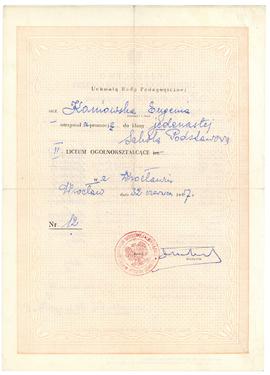 Uchwałą Rady Pedagogicznej
ucz. Kaniowska Eugenia
otrzymał promocję do klasy jedenastej
Szkoła Podstawowa
II LICEUM OGÓLNOKSZTAŁCĄCE
we Wrocławiu
Wrocław dnia 22 czerwca 1967.
Nr 12